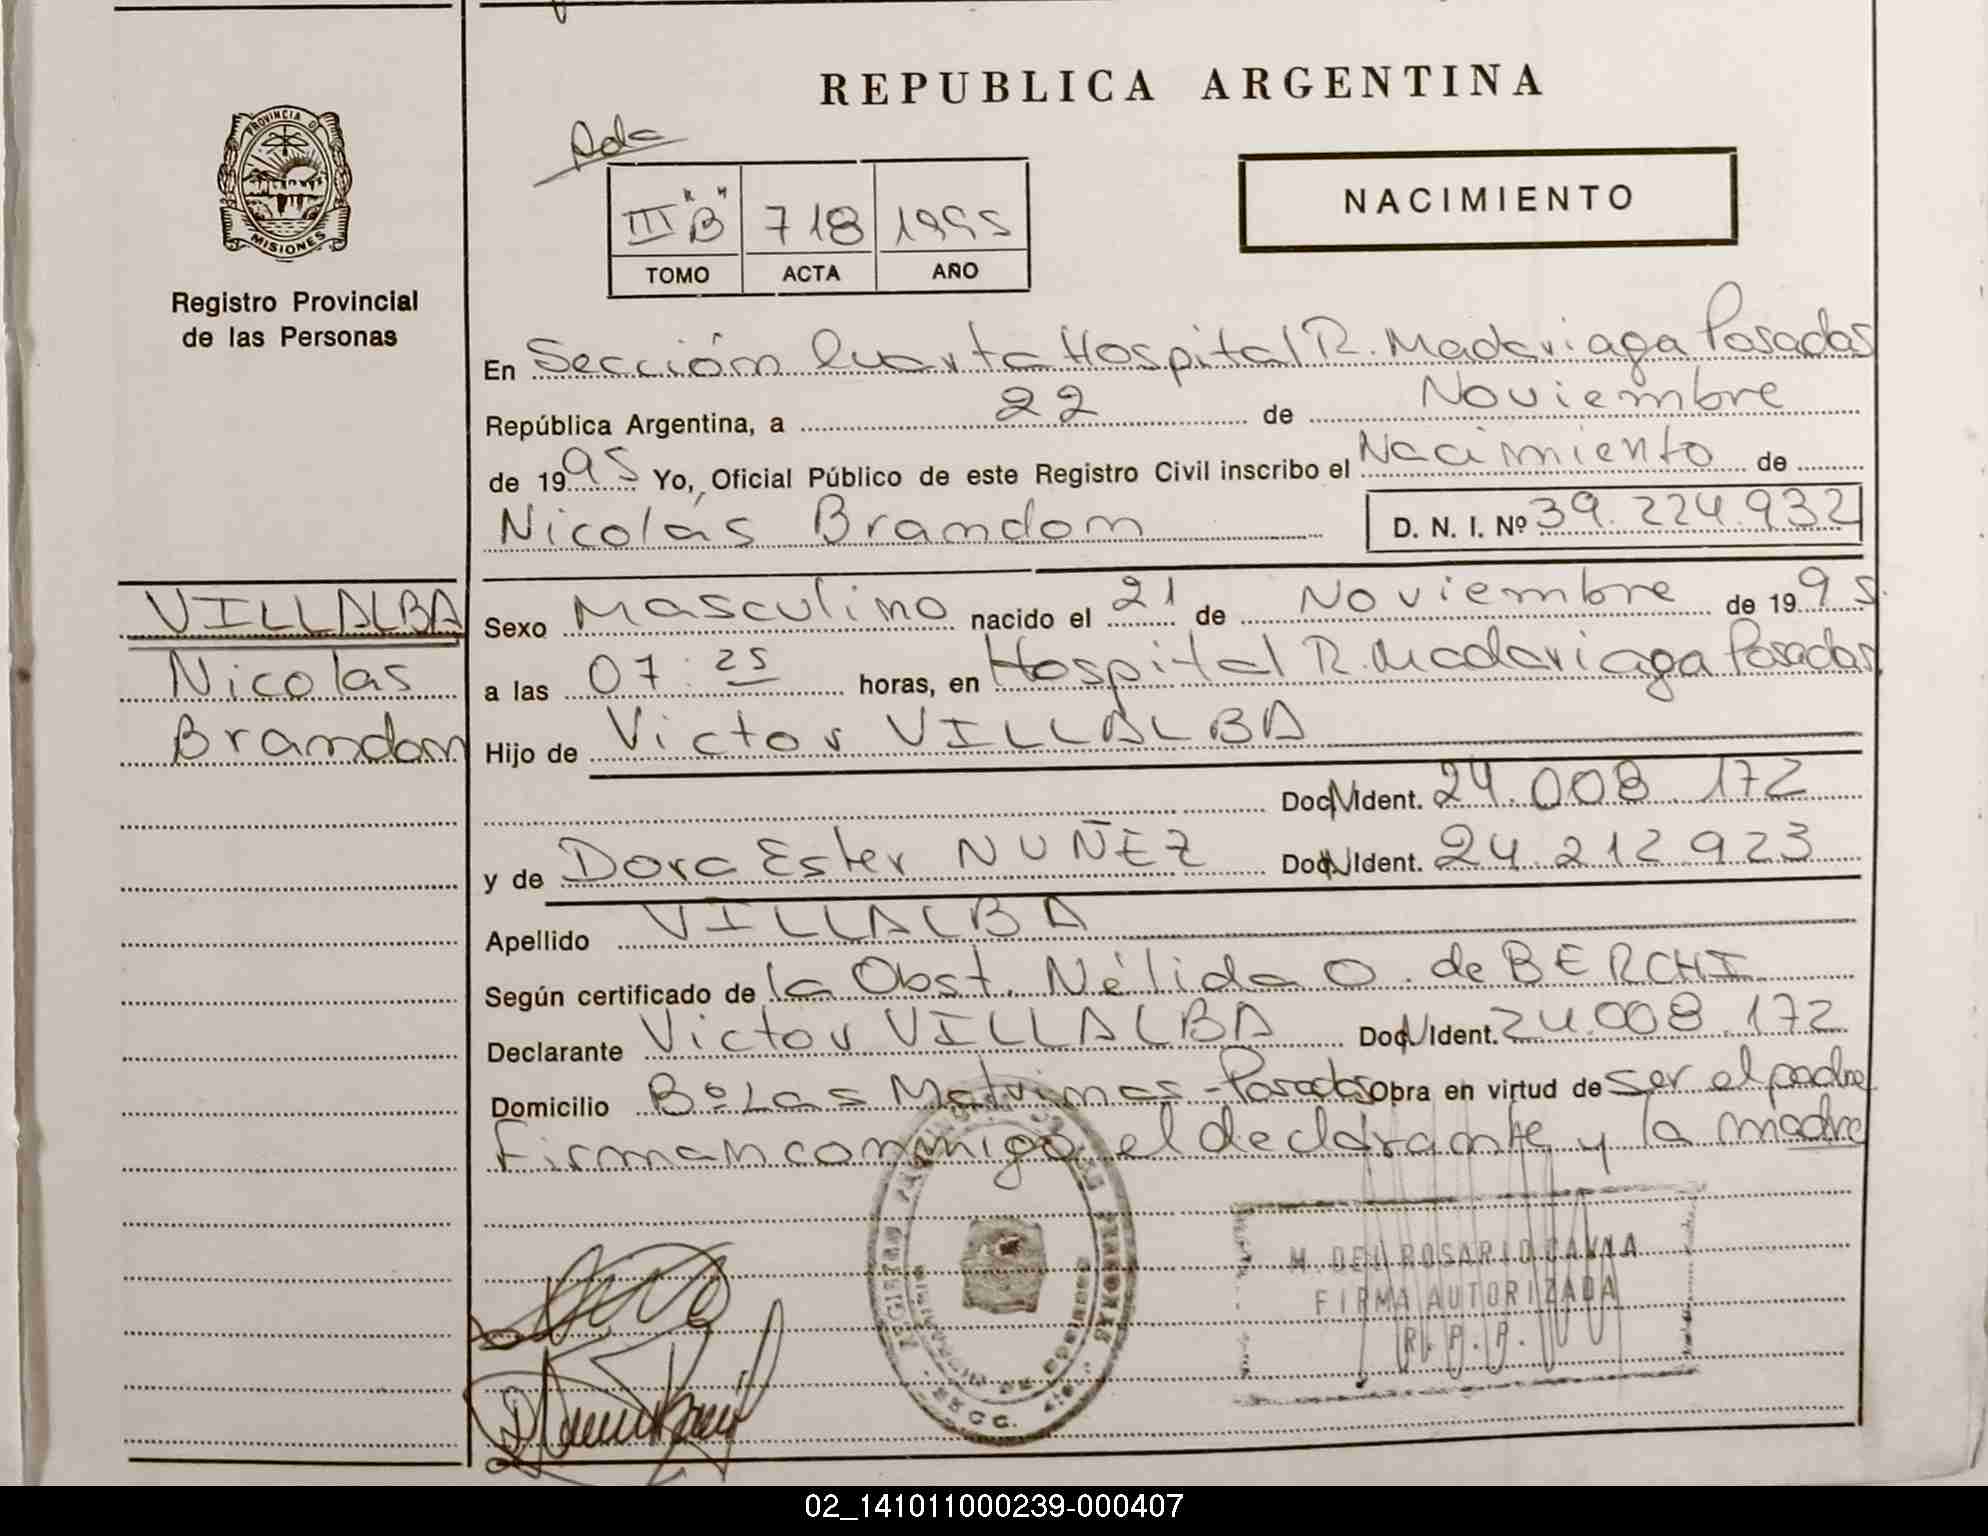 REPUBLICA ARGENTINA
PROVINCIA DE
MISIONES
Registro Provincial
de las Personas
III "B" 718 1995
TOMO ACTA AÑO
NACIMIENTO
En Sección Cuarta Hospital R. Madariaga Posadas
República Argentina, a 22 de Noviembre
de 1995 Yo, Oficial Público de este Registro Civil inscribo el Nacimiento de
Nicolás Brandon D. N. I. Nº 39.224.932
VILLALBA
Nicolas
Brandon
Sexo Masculino nacido el 21 de Noviembre de 1995.
a las 07:25 horas, en Hospital R. Madariaga Posadas
Hijo de Victor VILLALBA
Doc. Ident. 24.008.172
y de Dora Ester NUÑEZ Doc. Ident. 24.212.923
Apellido VILLALBA
Según certificado de la Obst. Nélida O. de BERCHI
Declarante Victor VILLALBA Doc. Ident. 24.008.172
Domicilio Bº Las Matrimas - Posadas Obra en virtud de ser el padre
Firman conmigo el declarante y la madre
M. DEL ROSARIO
FIRMA AUTORIZADA
R. P. P.
02_141011000239-000407